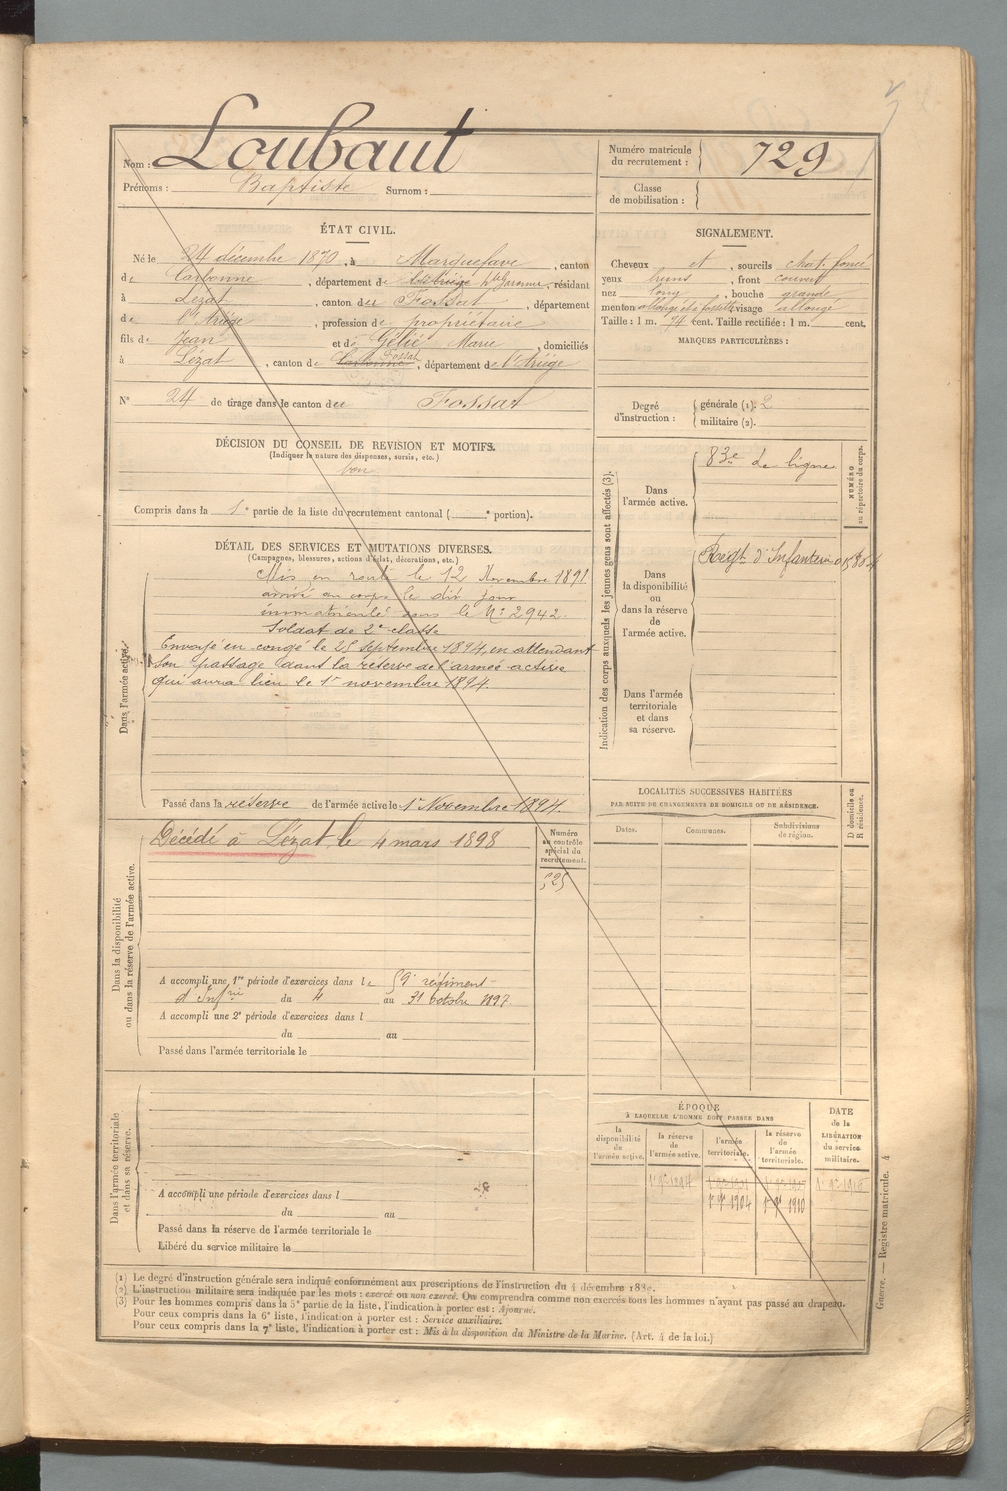 Nom : Loubaut
Prénoms : Baptiste Surnom :
Numéro matricule du recrutement : 729
Classe de mobilisation :
ÉTAT CIVIL.
Né le 24 décembre 1870, à Marquefave, canton
de Carbonne, département de hte Garonne, résidant
à Lézat, canton du Fossat, département
de l'Ariège, profession de propriétaire
fils de Jean et de Gélié Marie, domiciliés
à Lézat, canton de Carbonne Fossat, département de l'Ariège
N° 24 de tirage dans le canton du Fossat
SIGNALEMENT.
Cheveux et, sourcils chat. foncé
yeux bruns, front couvert
nez long, bouche grande
menton allongé et à fossette visage allongé
Taille : 1 m. 74 cent. Taille rectifiée : 1 m. cent.
MARQUES PARTICULIÈRES :
Degré d'instruction : générale (1). 2
militaire (2).
DÉCISION DU CONSEIL DE REVISION ET MOTIFS.
(Indiquer la nature des dispenses, sursis, etc.)
bon
Compris dans la 1e partie de la liste du recrutement cantonal ( e portion).
DÉTAIL DES SERVICES ET MUTATIONS DIVERSES.
(Campagnes, blessures, actions d'éclat, décorations, etc.)
Dans l'armée active.
Mis en route le 12 Novembre 1891
arrivé au corps le dit jour
immatriculé sous le N° 2942.
Soldat de 2e classe
Envoyé en congé le 25 septembre 1894, en attendant
son passage dans la réserve de l'armée active
qui aura lieu le 1er novembre 1894.
Passé dans la réserve de l'armée active le 1er Novembre 1894.
Indication des corps auxquels les jeunes gens sont affectés (3).
NUMÉRO au répertoire du corps.
Dans l'armée active.
83e de ligne
Dans la disponibilité ou dans la réserve de l'armée active.
Régt d'Infanterie
Dans l'armée territoriale et dans sa réserve.
LOCALITÉS SUCCESSIVES HABITÉES
PAR SUITE DE CHANGEMENTS DE DOMICILE OU DE RÉSIDENCE.
Dates. Communes. Subdivisions de région. D domicile ou R résidence.
Dans la disponibilité ou dans la réserve de l'armée active.
Décédé à Lézat, le 4 mars 1898
Numéro au contrôle spécial du recrutement.
525
A accompli une 1re période d'exercices dans le 59e régiment
d'Infrie du 4 au 31 octobre 1897.
A accompli une 2e période d'exercices dans l
du au
Passé dans l'armée territoriale le
Dans l'armée territoriale et dans sa réserve.
A accompli une période d'exercices dans l
du au
Passé dans la réserve de l'armée territoriale le
Libéré du service militaire le
ÉPOQUE
À LAQUELLE L'HOMME DOIT PASSER DANS
la disponibilité de l'armée active.
la réserve de l'armée active.
l'armée territoriale.
la réserve de l'armée territoriale.
DATE de la LIBÉRATION du service militaire.
1er 9bre 1894
1er 9bre 1904 1er 9bre 1910
(1) Le degré d'instruction générale sera indiqué conformément aux prescriptions de l'instruction du 4 décembre 1889.
(2) L'instruction militaire sera indiquée par les mots : exercé ou non exercé. On comprendra comme non exercés tous les hommes n'ayant pas passé au drapeau.
(3) Pour les hommes compris dans la 5e partie de la liste, l'indication à porter est : Ajourné.
Pour ceux compris dans la 6e liste, l'indication à porter est : Service auxiliaire.
Pour ceux compris dans la 7e liste, l'indication à porter est : Mis à la disposition du Ministre de la Marine. (Art. 4 de la loi.)
Guerre. — Registre matricule. 4